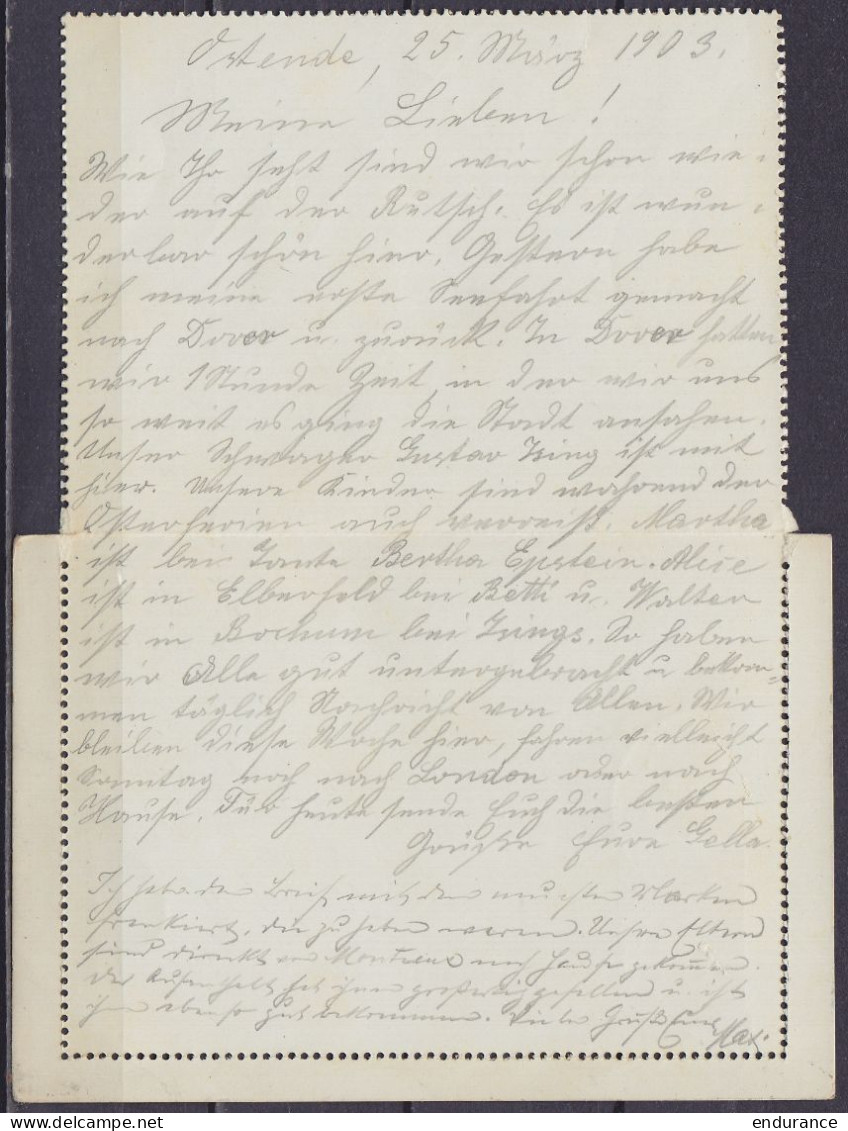 Ostende, 25. März 1903.
Meine Lieben!
Wie Ihr seht sind wir schon wie-
der auf der Rutsch. Es ist wun-
derbar schön hier. Gestern habe
ich meine erste Seefahrt gemacht
nach Dover u. zurück. In Dover hatten
wir 1 Stunde Zeit, in der wir uns
so weit es ging die Stadt ansahen.
Unser Schwager Gustav Ising ist mit
hier. Unsere Kinder sind während der
Osterferien auch verreist. Martha
ist bei Tante Bertha Epstein. Alice
ist in Elberfeld bei Betti u. Walter
ist in Bochum bei Isings. So haben
wir Alle gut untergebracht u bekom=
men täglich Nachricht von Allen. Wir
bleiben diese Woche hier, fahren vielleicht
Sonntag noch nach London oder nach
Hause. Für heute sende Euch die besten
Grüße Eure Bella
Ich habe den Brief mit den neuesten Marken
frankiert, die zu haben waren. Unsre Eltern
sind direkt von Montreux nach Hause gekommen.
Der Aufenthalt hat ihnen großartig gefallen u. ist
ihnen ebenso gut bekommen. Viele Grüße Euer
Max.
endurance